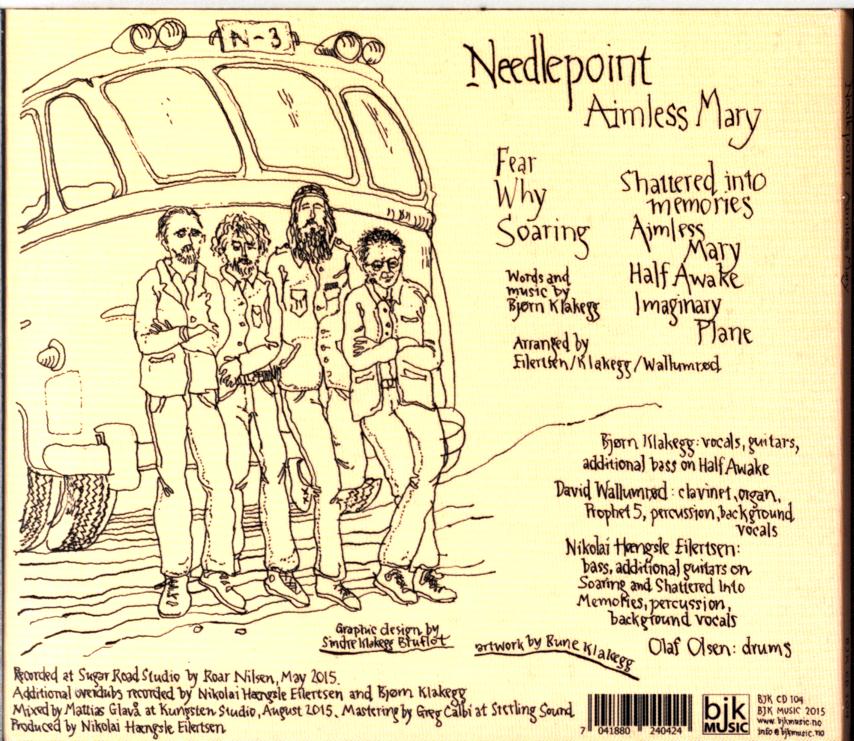 N-3
Needlepoint
Aimless Mary
Fear
Why
Soaring
Words and
music by
Bjørn Klakegg
Arranged by
Eilertsen/Klakegg/Wallumrød
Shattered into
memories
Aimless
Mary
Half Awake
Imaginary
Plane
Bjørn Klakegg: vocals, guitars,
additional bass on Half Awake
David Wallumrød: clavinet, organ,
Prophet 5, percussion, background
vocals
Nikolai Hængsle Eilertsen:
bass, additional guitars on
Soaring and Shattered Into
Memories, percussion,
background vocals
Olaf Olsen: drums
Graphic design by
Sindre Klakegg Bruflot
artwork by Rune Klakegg
Recorded at Sugar Road Studio by Roar Nilsen, May 2015.
Additional overdubs recorded by Nikolai Hængsle Eilertsen and Bjørn Klakegg
Mixed by Mattias Glavå at Kungsten Studio, August 2015. Mastering by Greg Calbi at Sterling Sound
Produced by Nikolai Hængsle Eilertsen
7 041880 240424
bjk
MUSIC
BJK CD 104
BJK MUSIC 2015
www.bjkmusic.no
info@bjkmusic.no